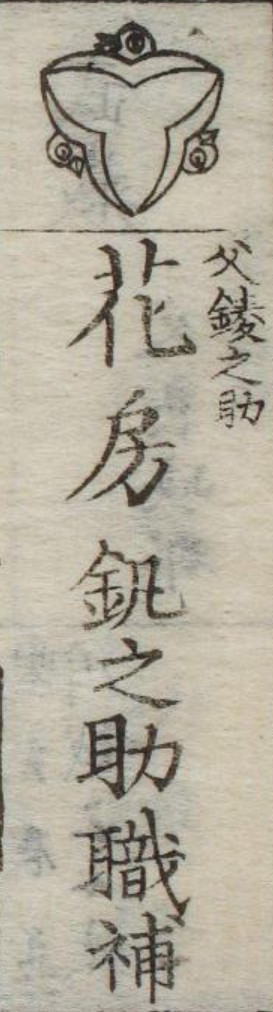 父錂之助
花房釩之助職補